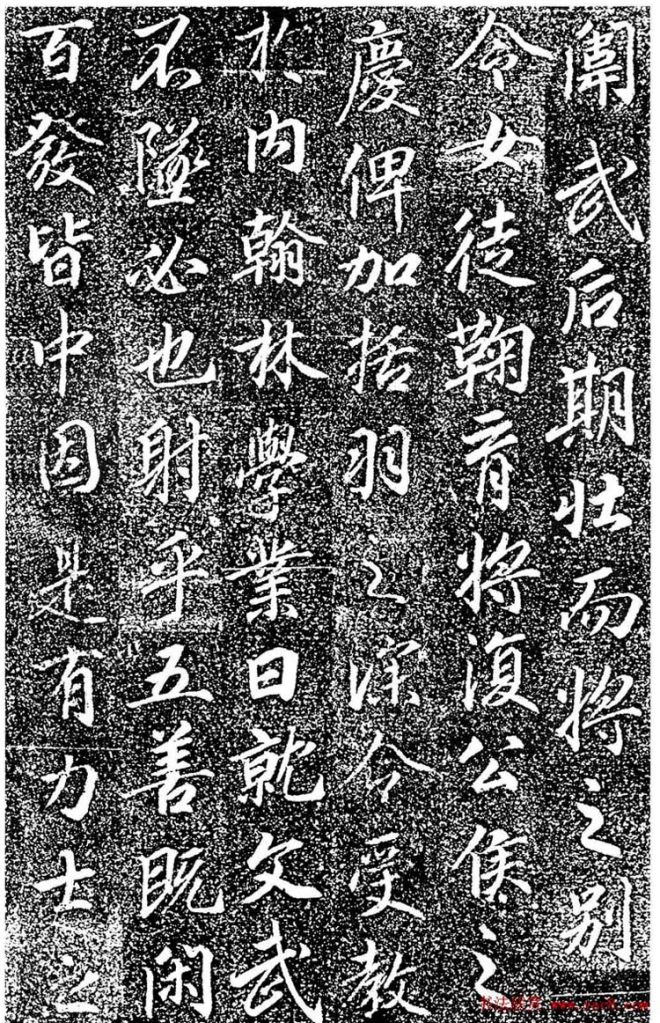 闈武后期壯而将之别
令女徒鞠育将復公侯之
慶俾加括羽之深令受教
於内翰林學業日就文武
不墜必也射乎五善既閑
百發皆中因是有力士之